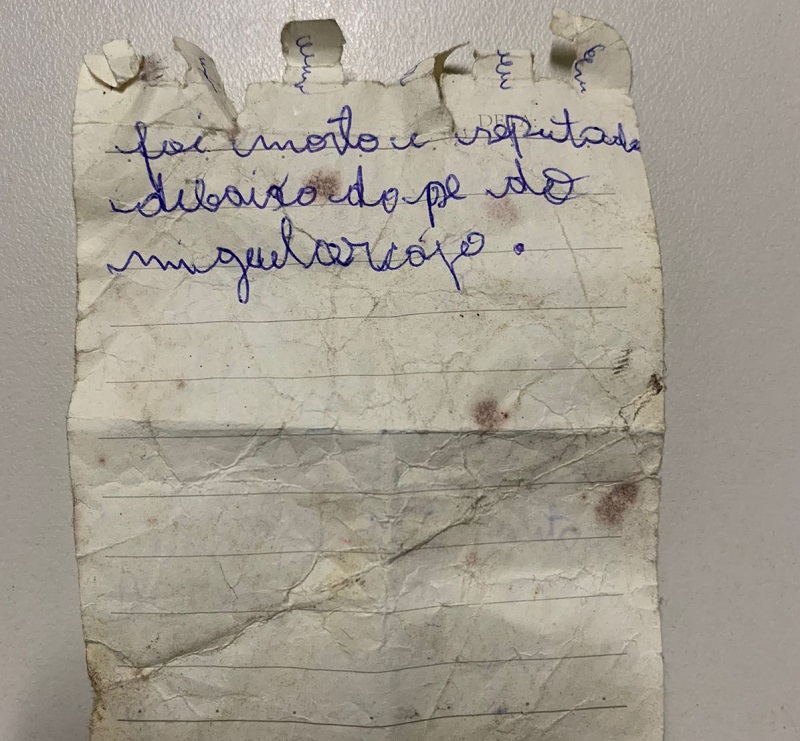 foi morto e seputado
dibaixo do pe do
miguel arcajo .